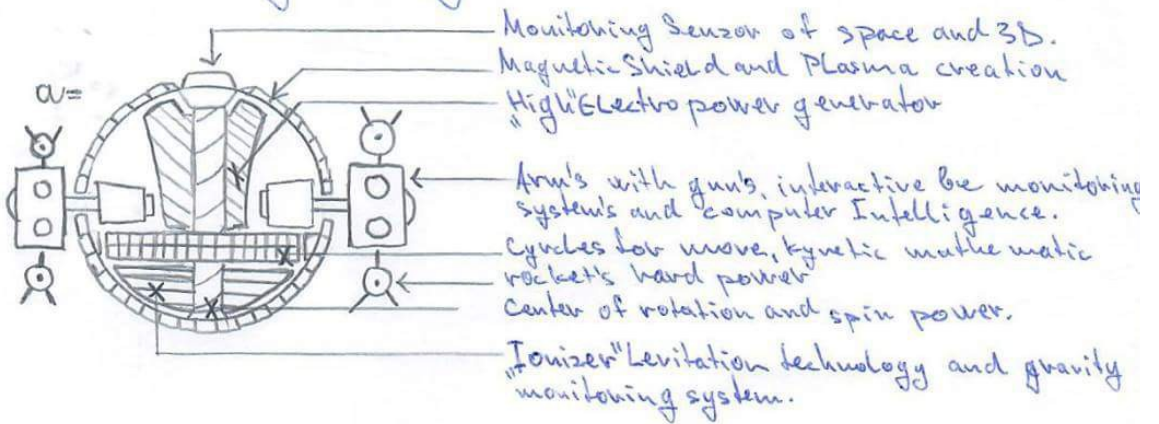 Monitoring Senzor of space and 3D.
Magnetic Shield and Plasma creation
„High" Electro power generator
a=
Arm's with gun's, interactive be monitoring
system's and computer Intelligence.
Cyrcles for move, kynetic mathematic
rocket's hard power
Center of rotation and spin power.
„Ionizer" Levitation technology and gravity
monitoring system.